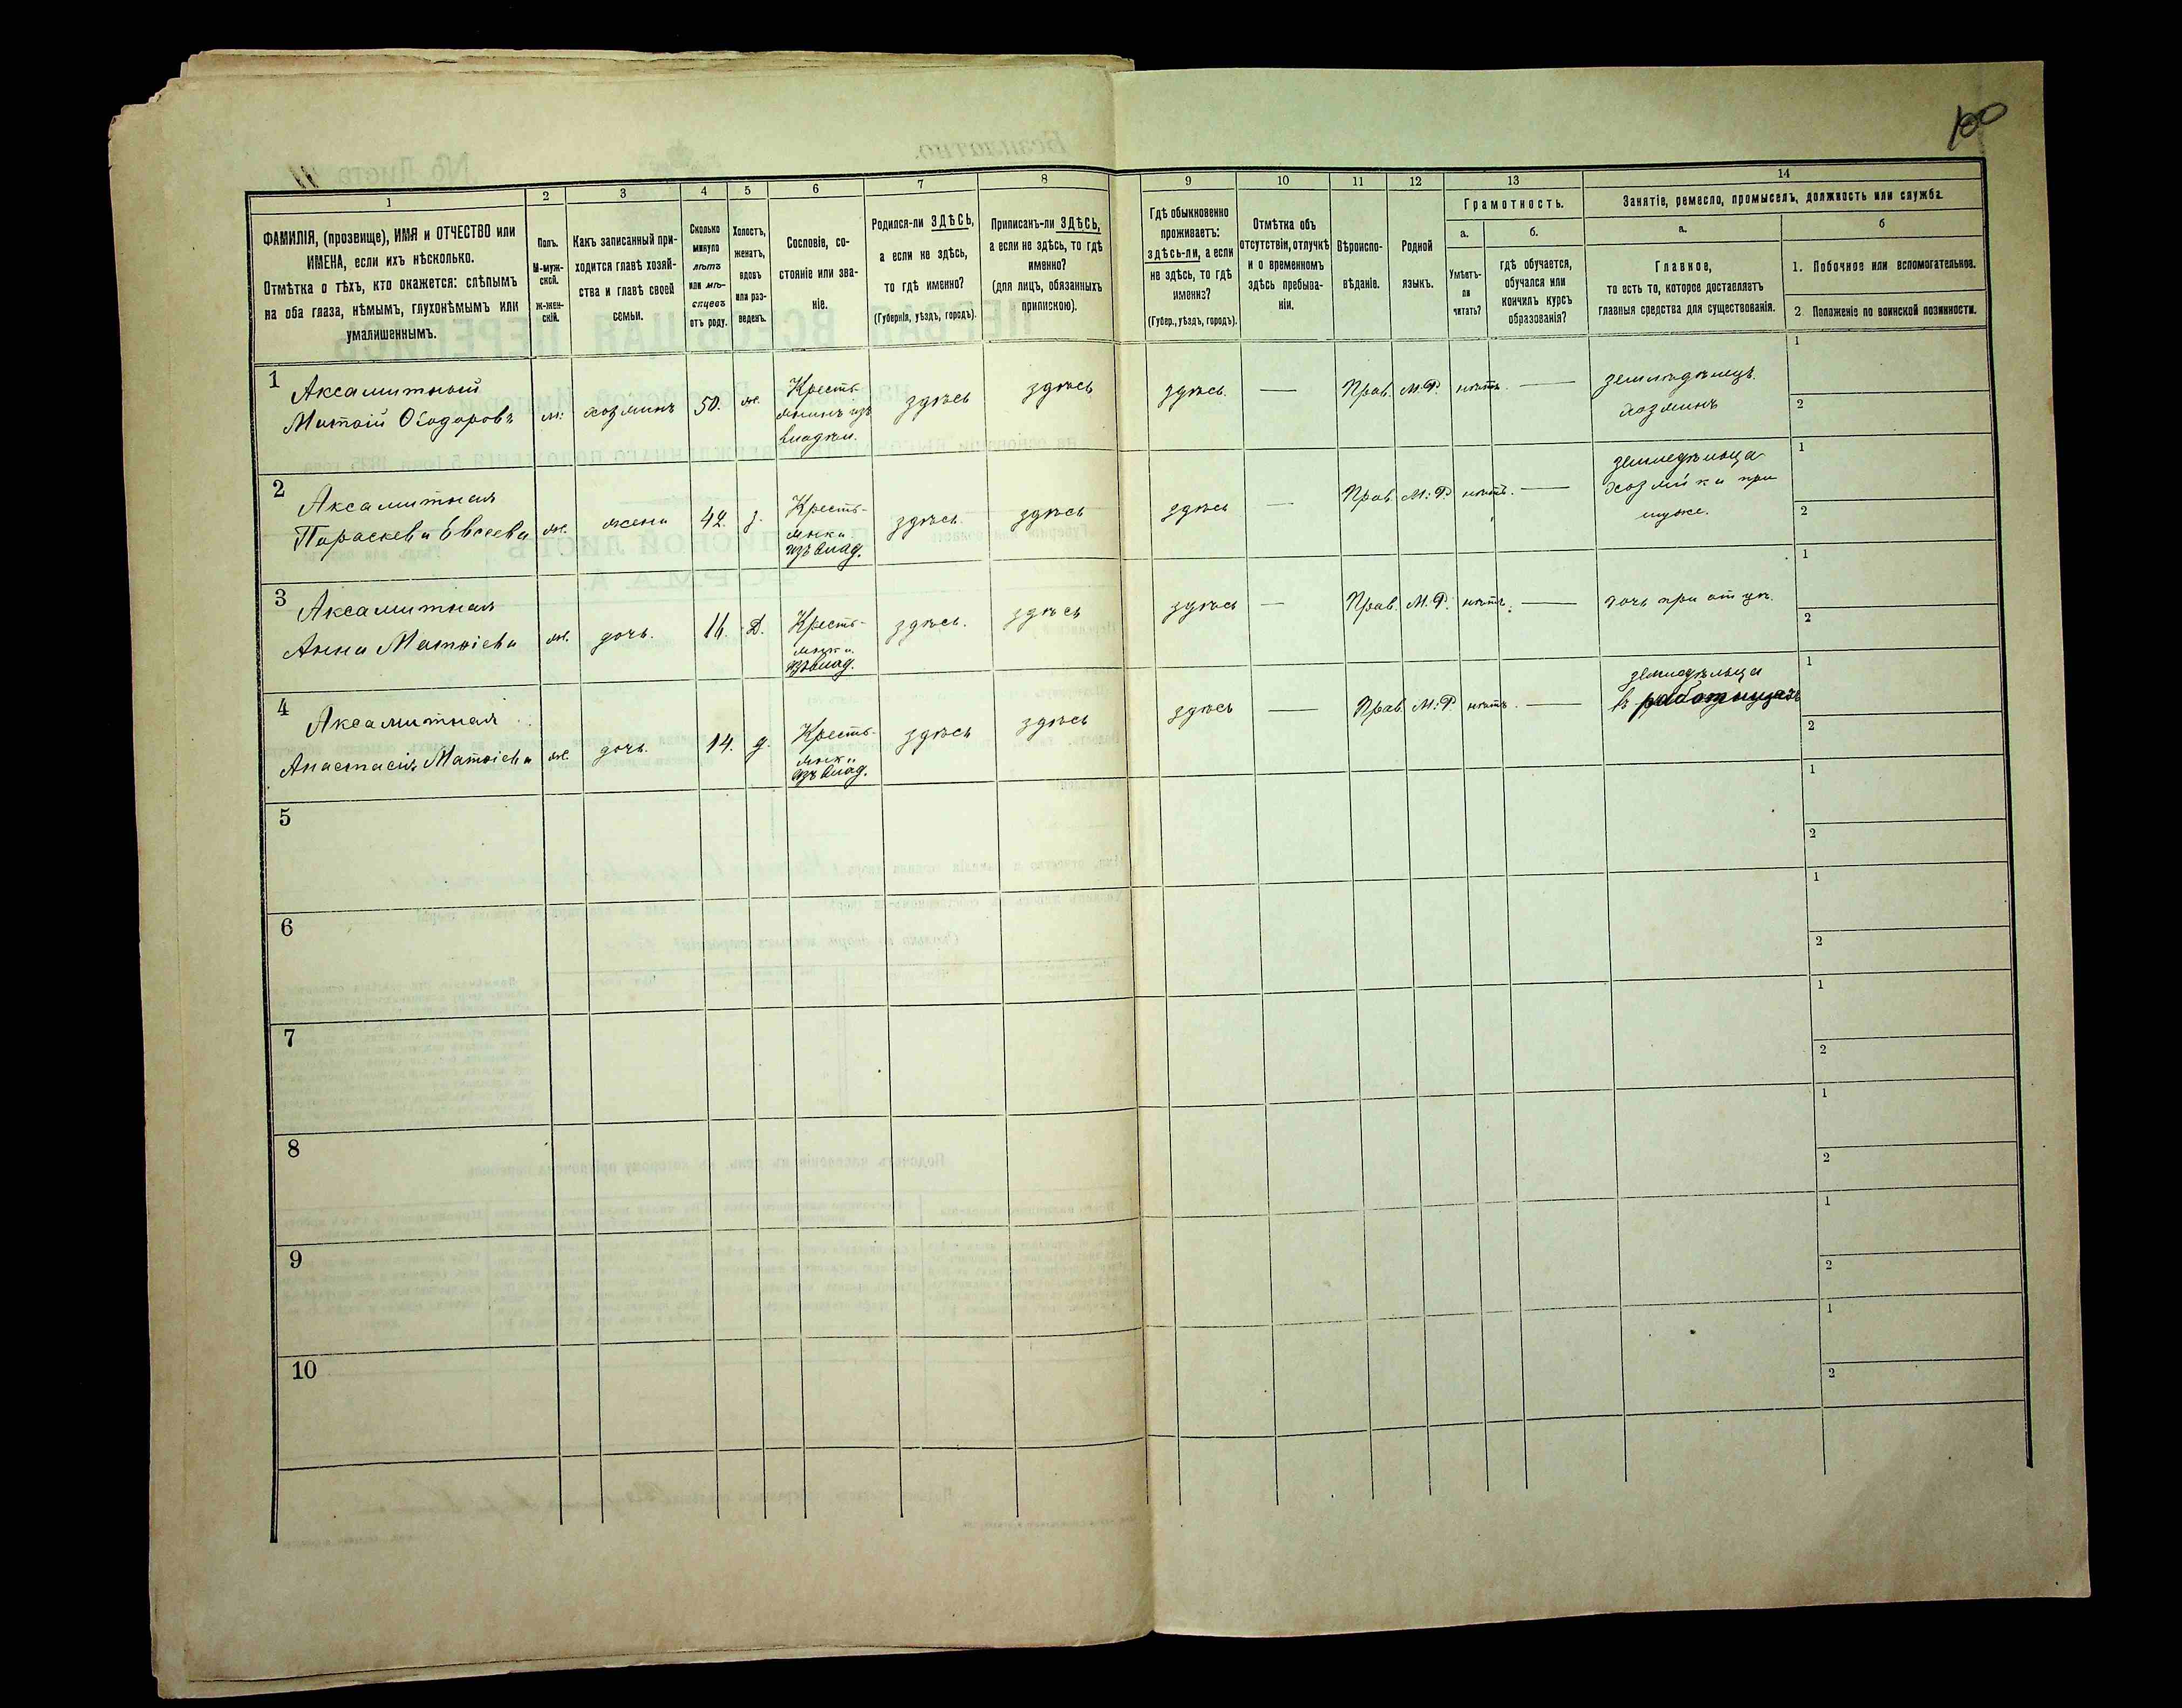 100
1
2
3
4
5
6
7
8
9
10
11
12
13
14
ФАМИЛІЯ, (прозвище), ИМЯ и ОТЧЕСТВО или
ИМЕНА, если ихъ нѣсколько.
Отмѣтка о тѣхъ, кто окажется: слѣпымъ
на оба глаза, нѣмымъ, глухонѣмымъ или
умалишеннымъ.
Полъ.
М-муж-
ской.
Ж-жен-
скій.
Какъ записанный при-
ходится главѣ хозяй-
ства и главѣ своей
семьи.
Сколько
минуло
лѣтъ
или мѣ-
сяцевъ
отъ роду.
Холостъ,
женатъ,
вдовъ
или раз-
веденъ.
Сословіе, со-
стояніе или зва-
ніе.
Родился-ли ЗДѢСЬ,
а если не здѣсь,
то гдѣ именно?
(Губернія, уѣздъ, городъ).
Приписанъ-ли ЗДѢСЬ,
а если не здѣсь, то гдѣ
именно?
(для лицъ, обязанныхъ
припискою).
Гдѣ обыкновенно
проживаетъ:
здѣсь-ли, а если
не здѣсь, то гдѣ
именно?
(Губер., уѣздъ, городъ).
Отмѣтка объ
отсутствіи, отлучкѣ
и о временномъ
здѣсь пребыва-
ніи.
Вѣроиспо-
вѣданіе.
Родной
языкъ.
Грамотность.
а.
Умѣетъ-
ли
читать?
б.
гдѣ обучается,
обучался или
кончилъ курсъ
образованія?
Занятіе, ремесло, промыселъ, должность или служба.
а.
Главное,
то есть то, которое доставляетъ
главныя средства для существованія.
б
1. Побочное или вспомогательное.
2. Положеніе по воинской повинности.
1
Аксамитный
Матвій Ѳіодоровъ
м.
хозяинъ
50.
ж.
Кресть-
янинъ изъ
владѣл.
здѣсь
здѣсь
здѣсь.
—
Прав.
М.Р.
нѣтъ.
—
земледѣлецъ.
хозяинъ
1
2
2
Аксамитная
Параскева Евсеева
ж.
жена
42.
з.
Кресть-
янка
изъ влад.
здѣсь.
здѣсь
здѣсь
—
Прав.
М.Р.
нѣтъ.
—
земледѣлица
хозяйка при
муже.
1
2
3
Аксамитная
Анна Матвіева
ж.
дочь.
16.
Д.
Кресть-
янка
изъ влад.
здѣсь.
здѣсь
здѣсь
—
Прав.
М.Р.
нѣтъ.
—
дочь при отцѣ.
1
2
4
Аксамитная
Анастасія Матвіева
ж.
дочь.
14.
д.
Кресть-
янка
изъ влад.
здѣсь
здѣсь
здѣсь
—
Прав.
М.Р.
нѣтъ.
—
земледѣлица
въ работницахъ
1
2
5
1
2
6
1
2
7
1
2
8
1
2
9
1
2
10
1
2